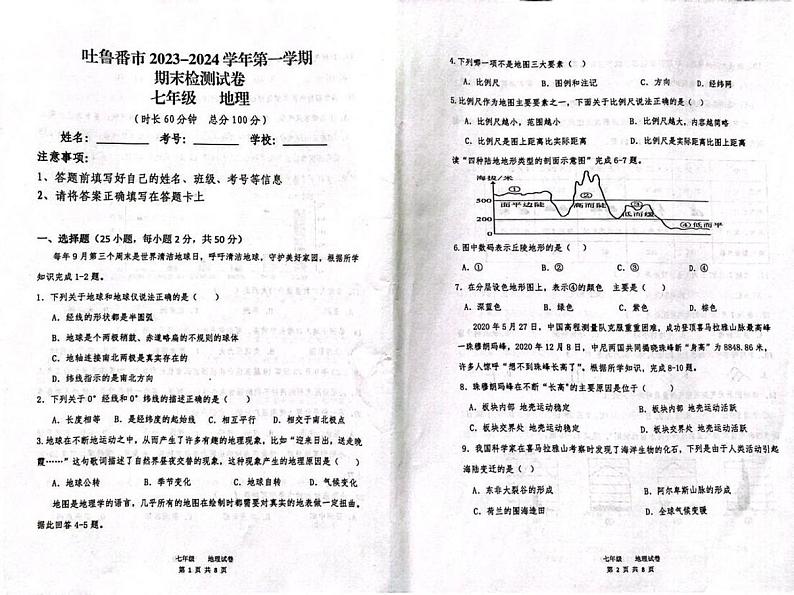 吐鲁番市 2023-2024 学年第一学期
期末检测试卷
七年级 地理
(时长 60 分钟 总分 100 分)
姓名：________ 考号：________ 学校：________
注意事项：
1、答题前填写好自己的姓名、班级、考号等信息
2、请将答案正确填写在答题卡上
一、选择题（25 小题，每小题 2 分，共 50 分）
每年 9 月第三个周末是世界清洁地球日，呼吁清洁地球，守护美好家园，根据所学
知识完成 1-2 题。
1．下列关于地球和地球仪说法正确的是（ ）
A．经线的形状都是半圆弧
B．地球是个两极稍鼓、赤道略扁的不规则的球体
C．地轴连接南北两极是真实存在的
D．纬线指示的是南北方向
2．下列关于 0° 经线和 0° 纬线的描述正确的是（ ）
A．长度相等 B．是经纬度的起始线 C．相互平行 D．相交于南北极点
3.地球在不断地运动之中，从而产生了许多有趣的地理现象，比如“迎来日出，送走晚
霞……”这句歌词描述了自然界昼夜交替的现象，这种现象产生的地理原因是（ ）
A．地球公转 B．季节变化 C．地球自转 D．气候变化
地图是地理学的语言，几乎所有的地图在绘制时都需要对真实的地表做一定扭曲。
据此回答 4-5 题。
七年级 地理试卷
第 1 页 共 8 页
4.下列哪一项不是地图三大要素（ ）
A．比例尺 B．图例和注记 C．方向 D．经纬网
5.比例尺作为地图主要要素之一，下面关于比例尺说法正确的是（ ）
A．比例尺越小，范围越小 B．比例尺越大，内容越简略
C．比例尺是图上距离比实际距离 D．比例尺是实际距离比图上距离
读“四种陆地地形类型的剖面示意图”完成 6-7 题。
海拔/米
500
200
0
①
面平边陡
②
高而陡
③
低而缓
④低而平
6.图中数码表示丘陵地形的是（ ）
A．① B．② C．③ D．④
7．在分层设色地形图上，表示④的颜色 主要是（ ）
A．深蓝色 B．绿色 C．紫色 D．棕色
2020 年 5 月 27 日，中国高程测量队克服重重困难，成功登顶喜马拉雅山脉最高峰
—珠穆朗玛峰，2020 年 12 月 8 日，中尼两国共同揭晓珠峰新“身高”为 8848.86 米，
许多人惊呼“想不到珠峰长高了”。根据所学知识，完成 8-10 题。
8．珠穆朗玛峰在不断“长高”的主要原因是位于（ ）
A．板块内部 地壳运动稳定 B．板块内部 地壳运动活跃
C．板块交界处 地壳运动稳定 D．板块交界处 地壳运动活跃
9．我国科学家在喜马拉雅山考察时发现了海洋生物的化石，下列是由于人类活动引起
海陆变迁的是（ ）
A．东非大裂谷的形成 B．阿尔卑斯山脉的形成
C．荷兰的围海造田 D．全球气候变暖
七年级 地理试卷
第 2 页 共 8 页